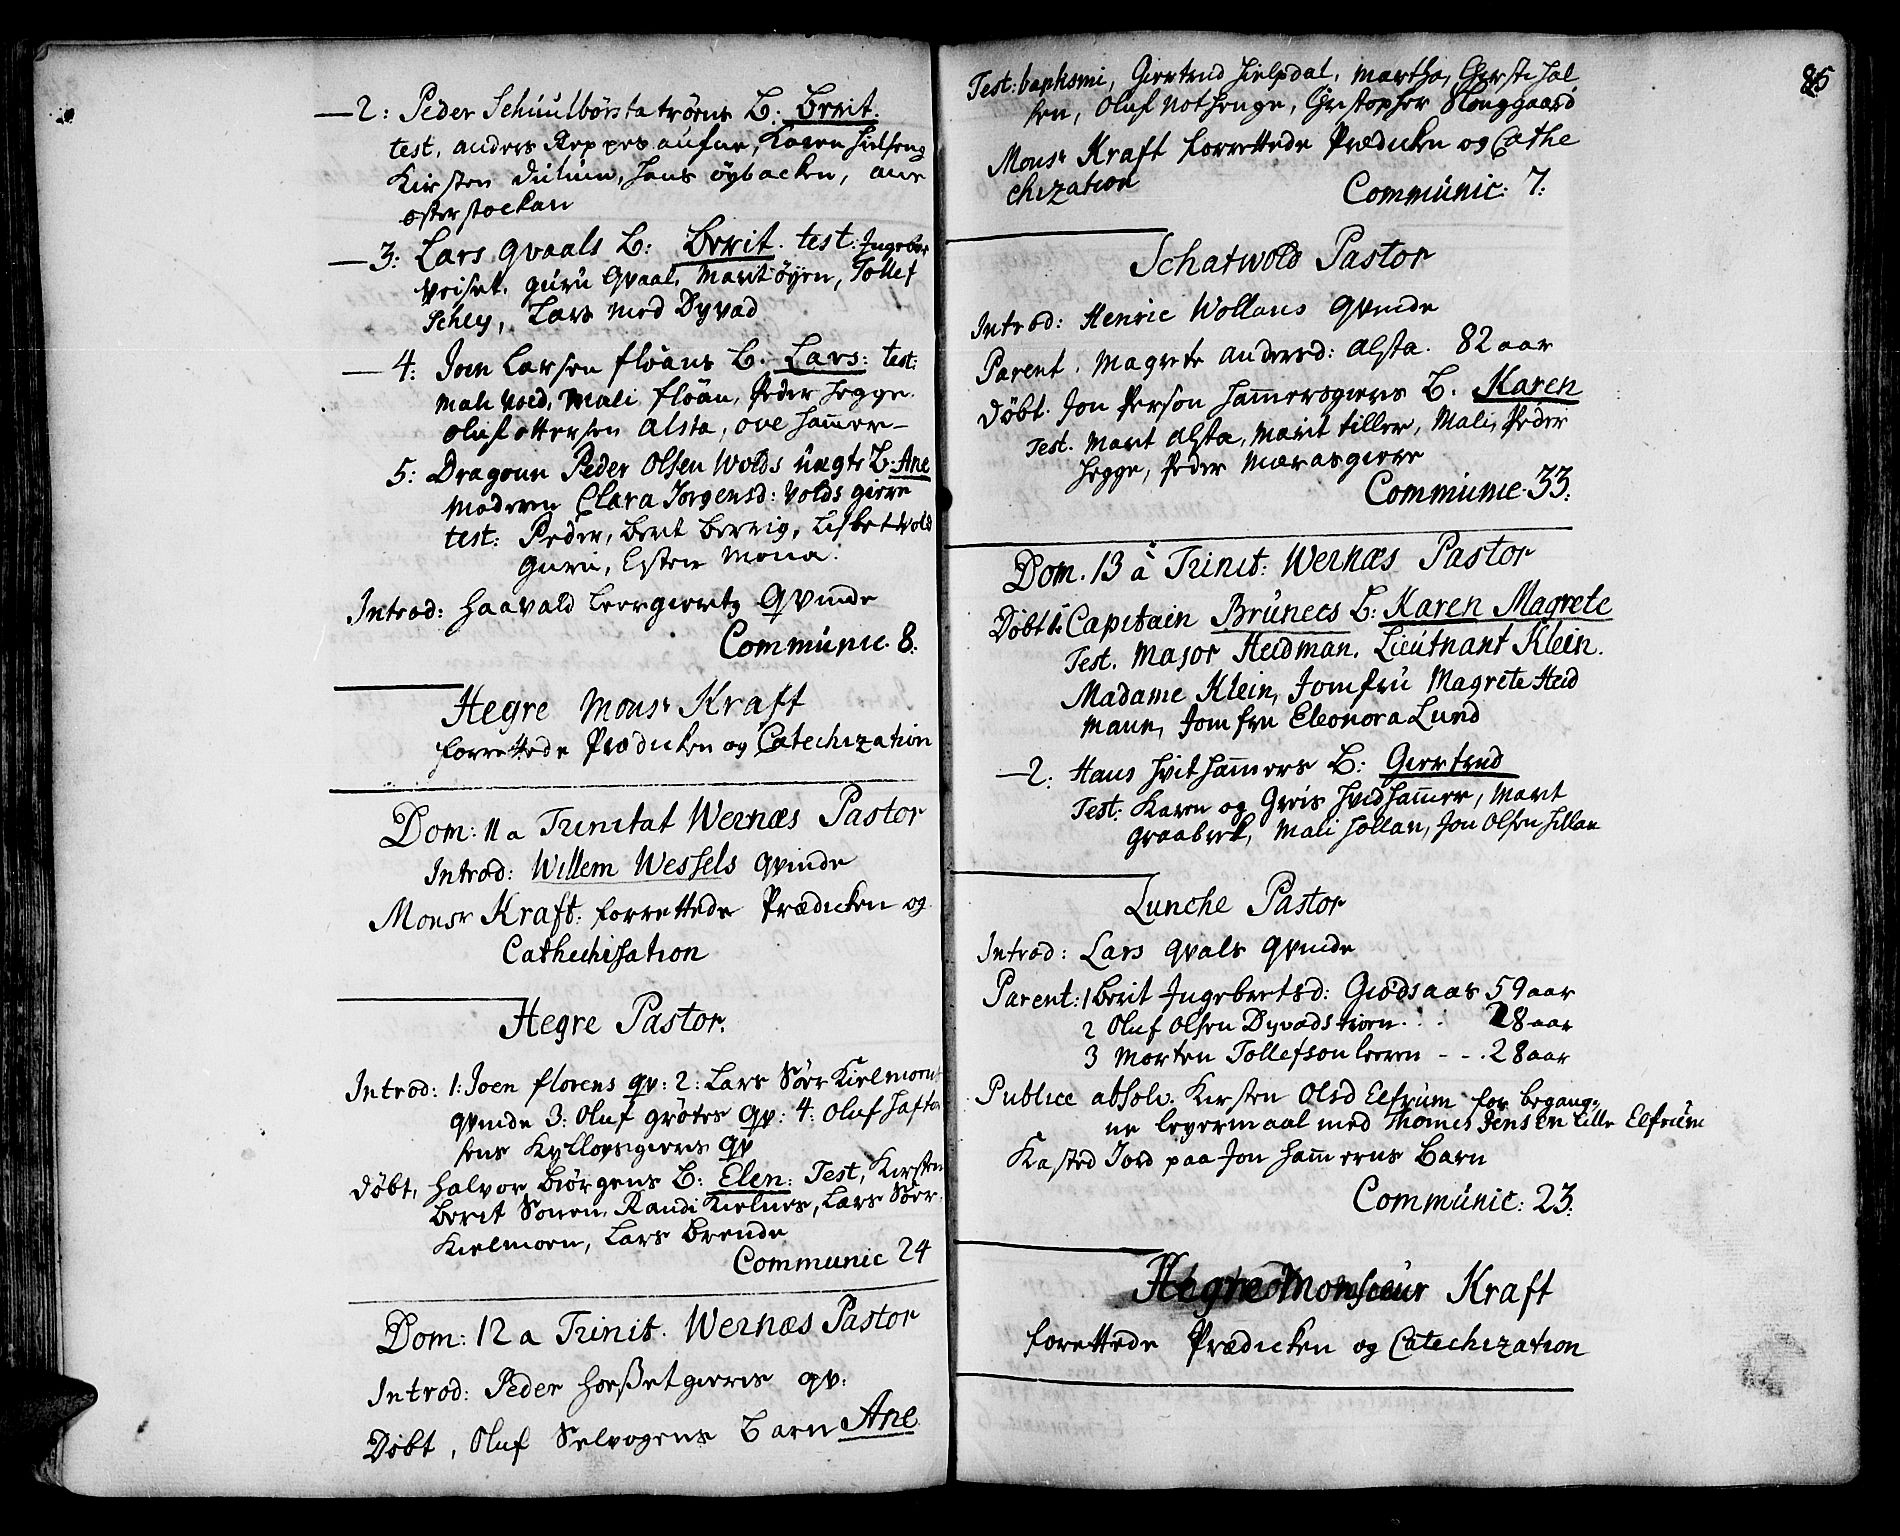 —2: Peder Schuulbørstatrøens B: Berit.
test, anders Reppesaufne, Karen Hielseng
Kirsten Duluun, Hans øybacken, ane
østerstockan
—3: Lars Qvaals B: Berit. test: Ingebor
Veiset, guru Qvaal, Marit øyen, Tollef
Schey, Lars med Dyvad
—4: Joen Larsen fløans B. Lars: test:
Mali Vold, Mali fløan, Peder Hegge.
Oluf ottersen Alsta, ove Ham̄er—
5: Dragoun Peder Olsen Wolds uægte B: Ane
Moderen Clara Jørgensd: Voldsgiere
test: Peder, Berit Berrig, Lisbet Vold
Guru, Esten Mona.
Introd: Haavald Leergiertz Qvinde
Communic. 8.
Hegre Monsr Kraft
forrettede Prædicken og Catechization
Dom: 11 a Trinitat Wernæs Pastor
Introd: Willem Wessels qvinde
Monsr Kraft: forrettede Prædicken og
Cathechisation
Hegre Pastor.
Introd: 1: Joen florens qv: 2: Lars Sør Kielmoens
qvinde 3: Oluf grøtes qv: 4: Oluf Hafto
sens Kylloesgieres qv
Døbt, Halvor Biørgens B: Elen: Test, Kirsten
Berit Sonen, Randi Kielnes, Lars Søer
Kielmoen, Lars Brende
Communic 24
Dom: 12 a Trinit. Wernæs Pastor
Introd: Peder Hoeßetgieris qv:
Døbt, Oluf Selvogens Barn Ane
85
Test: baptismi, Giertrud Hielpdal, Martha, Giersti Hal
sen, Oluf Nothenge, Christopher Stenggaard
Monsr Kraft forrettede Prædicken og Cathe
chization
Communic: 7:
Schatwold Pastor
Introd: Henric Wollans qvinde
Parent. Magrete Andersd: Alsta. 82 aar
Døbt. Jon Person Ham̄ersgieres B. Karen
Test. Marit Alsta, Marit tiller, Mali, Peder
Hegge, Peder Mærasgierre
Communic. 33.
Dom. 13 a Trinit: Wernæs Pastor
Døbt 1: Capitain Brunecs B: Karen Magrete
Test. Major Heidman, Lieutnant Klein.
Madame Klein, Jomfru Magrete Heid
mann, Jomfru Eleonora Lund
—2: Hans Hvitham̄ers B: Giertrud
Test: Karen og Greis Hvidham̄er, Marit
Graabrek, Mali Hollan, Jon Olsen Hillan
Lunche Pastor
Introd: Lars qvals qvinde
Parent: 1 Berit Ingebretsd: Giødsaas 59 aar
2 Oluf Olsen Dyvadstrøen . . . 28 aar
3 Morten Tollefson leeren - - . 28 aar
Publice absolv. Kirsten Olsd Elfrum for begang-
ne leyermaal med Thomes Jensen Lille Elfrum
Kasted Jord paa Jon Ham̄erns Barn
Communic: 23.
Hegre Monsieur Kraft
forrettede Prædicken og Catechization